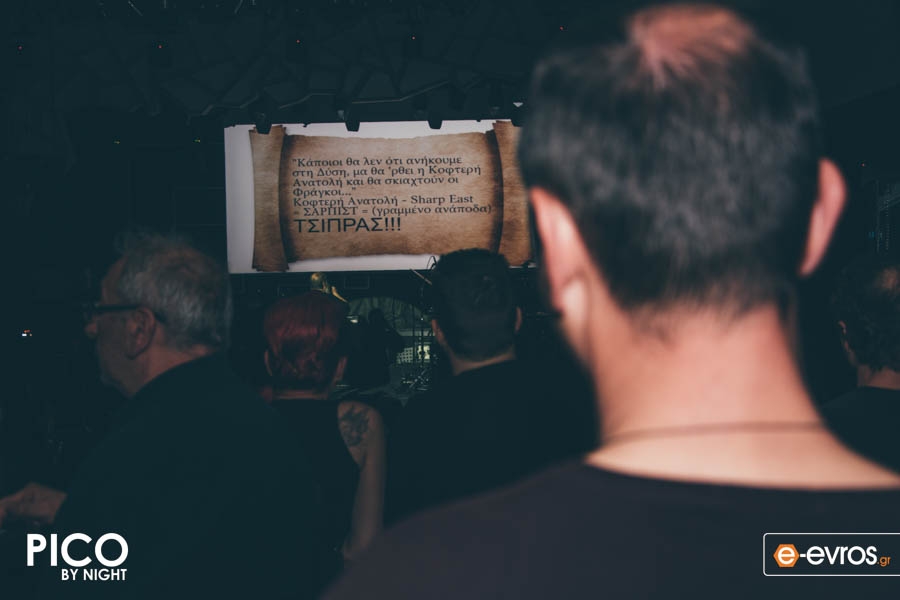 "Κάποιοι θα λεν ότι ανήκουμε
στη Δύση, μα θα 'ρθει η Κοφτερή
Ανατολή και θα σκιαχτούν οι
Φράγκοι..."
Κοφτερή Ανατολή - Sharp East
= ΣΑΡΠΙΣΤ = (γραμμένο ανάποδα)
ΤΣΙΠΡΑΣ!!!
PICO
BY NIGHT
e-evros.gr